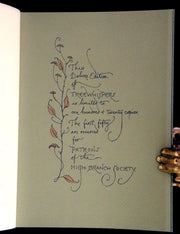 This
Deluxe Edition
of
TREEWHISPERS
is limited to
one hundred & twenty copies
The first fifty
are reserved
for
PATRONS
of the
HIGH BRANCH SOCIETY